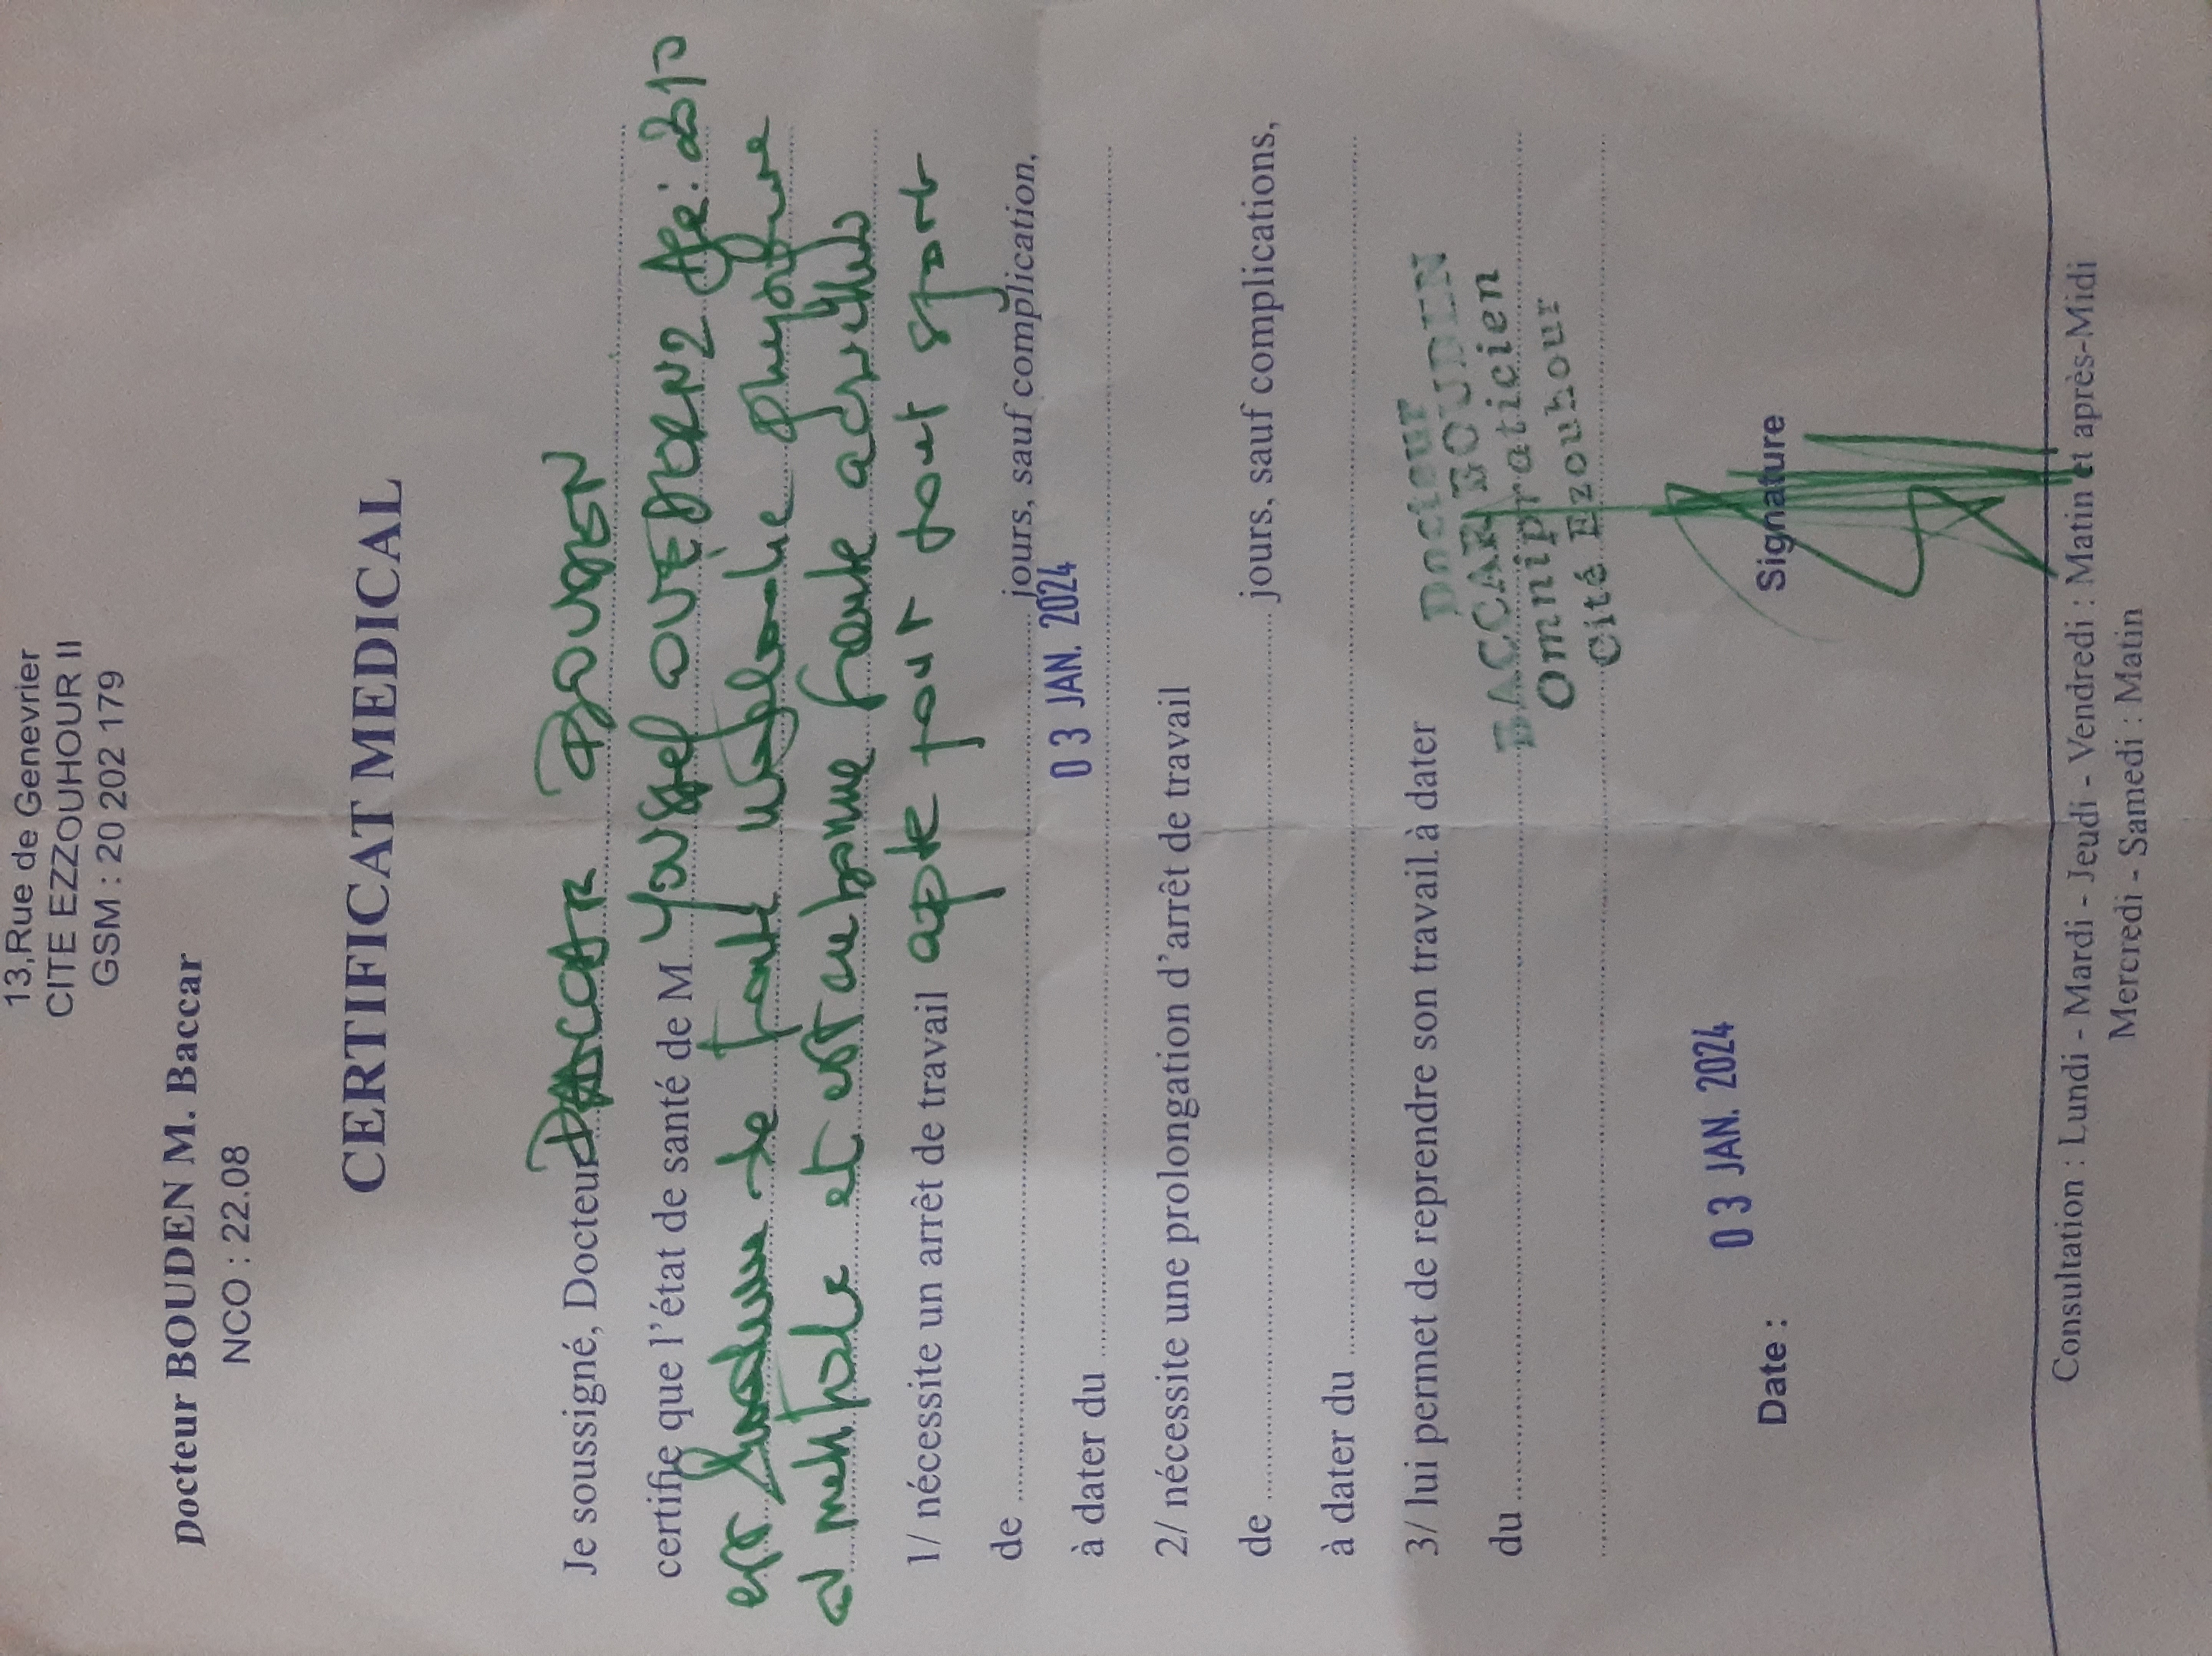 13,Rue de Genevrier
CITE EZZOUHOUR II
GSM : 20 202 179
Docteur BOUDEN M. Baccar
NCO : 22.08
CERTIFICAT MEDICAL
Je soussigné, Docteur BACCAR BOUDEN
certifie que l'état de santé de M Youssef Age : 2010
est de toute maladie physique
et mentale et est en bonne santé actuelle
1/ nécessite un arrêt de travail apte pour tout sport
de ........ jours, sauf complication,
à dater du ........ 03 JAN. 2024
2/ nécessite une prolongation d'arrêt de travail
de ........ jours, sauf complications,
à dater du ........
3/ lui permet de reprendre son travail à dater
du ........
Docteur
BACCAR BOUDEN
Omnipraticien
Cité Ezouhour
Date : 03 JAN. 2024
Signature
Consultation : Lundi - Mardi - Jeudi - Vendredi : Matin et après-Midi
Mercredi - Samedi : Matin